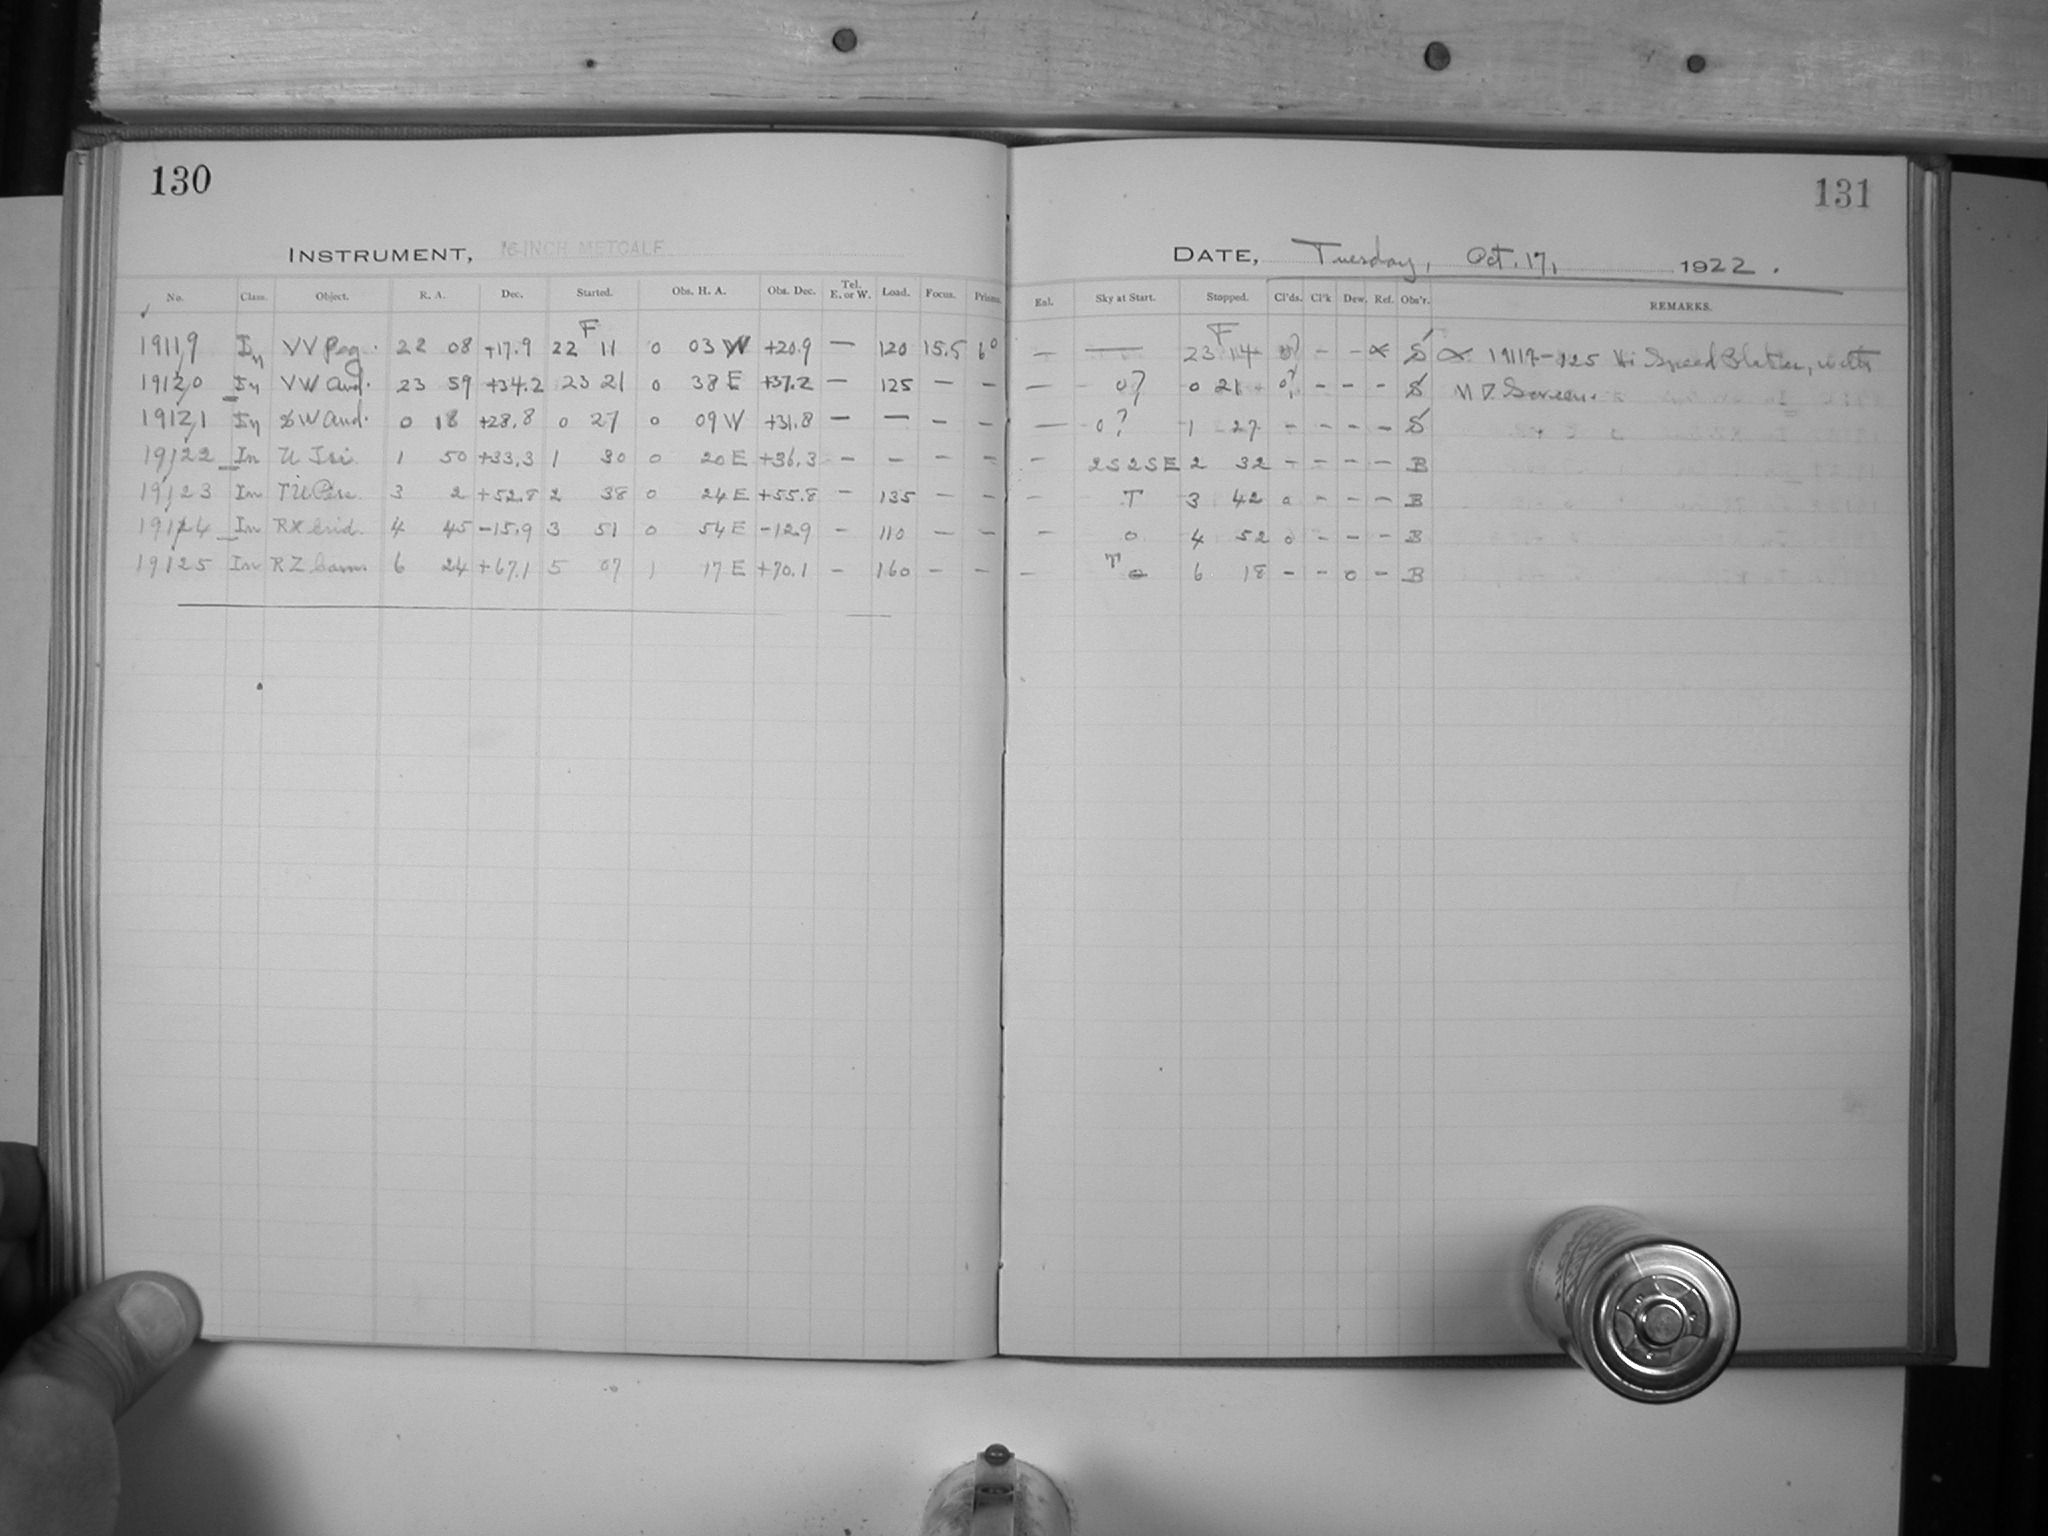 130
131
INSTRUMENT, 16-INCH METCALF
DATE, Tuesday, Oct. 17, 1922.
No. Class. Object. R. A. Dec. Started. Obs. H. A. Obs. Dec. Tel. E. or W. Load. Focus. Prisms. Enl. Sky at Start. Stopped. Cl'ds. Cl'k Dew. Ref. Obs'r. REMARKS.
F F
19119 In VV Peg. 22 08 +17.9 22 11 0 03 W +20.9 — 120 15.5 6° — — 23 14 0? - - ∝ S ∝ 19119-125 Hi Speed Plates, with
19120 In VW And. 23 59 +34.2 23 21 0 38 E +37.2 — 125 — — — 0? 0 21 0? - - - S Screen.
19121 In SW And. 0 18 +28.8 0 27 0 09 W +31.8 — — — — — 0? 1 27 - - - - S
19122 In U Tri. 1 50 +33.3 1 30 0 20 E +36.3 - - - - - 2S 2SE 2 32 - - - - B
19123 In TU Pers. 3 2 +52.8 2 38 0 24 E +55.8 - 135 - - - T 3 42 0 - - - B
19124 In RX Erid. 4 45 -15.9 3 51 0 54 E -12.9 - 110 - - - 0 4 52 0 - - - B
19125 In RZ Cam. 6 24 +67.1 5 07 1 17 E +70.1 - 160 - - - T 6 18 - - 0 - B